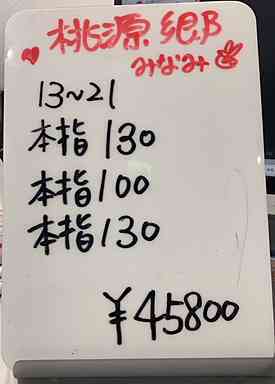 桃源郷
みなみ
13~21
本指130
本指100
本指130
¥45800